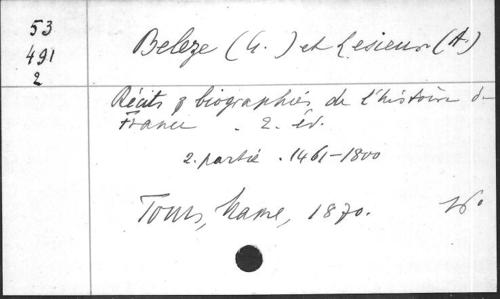 53
491
2
Beleze (G.) et Lesieur (A.)
Récits & biographies de l'histoire de
France . 2. éd.
2. partie . 1461-1800
Tours, Mame, 1870. 16°